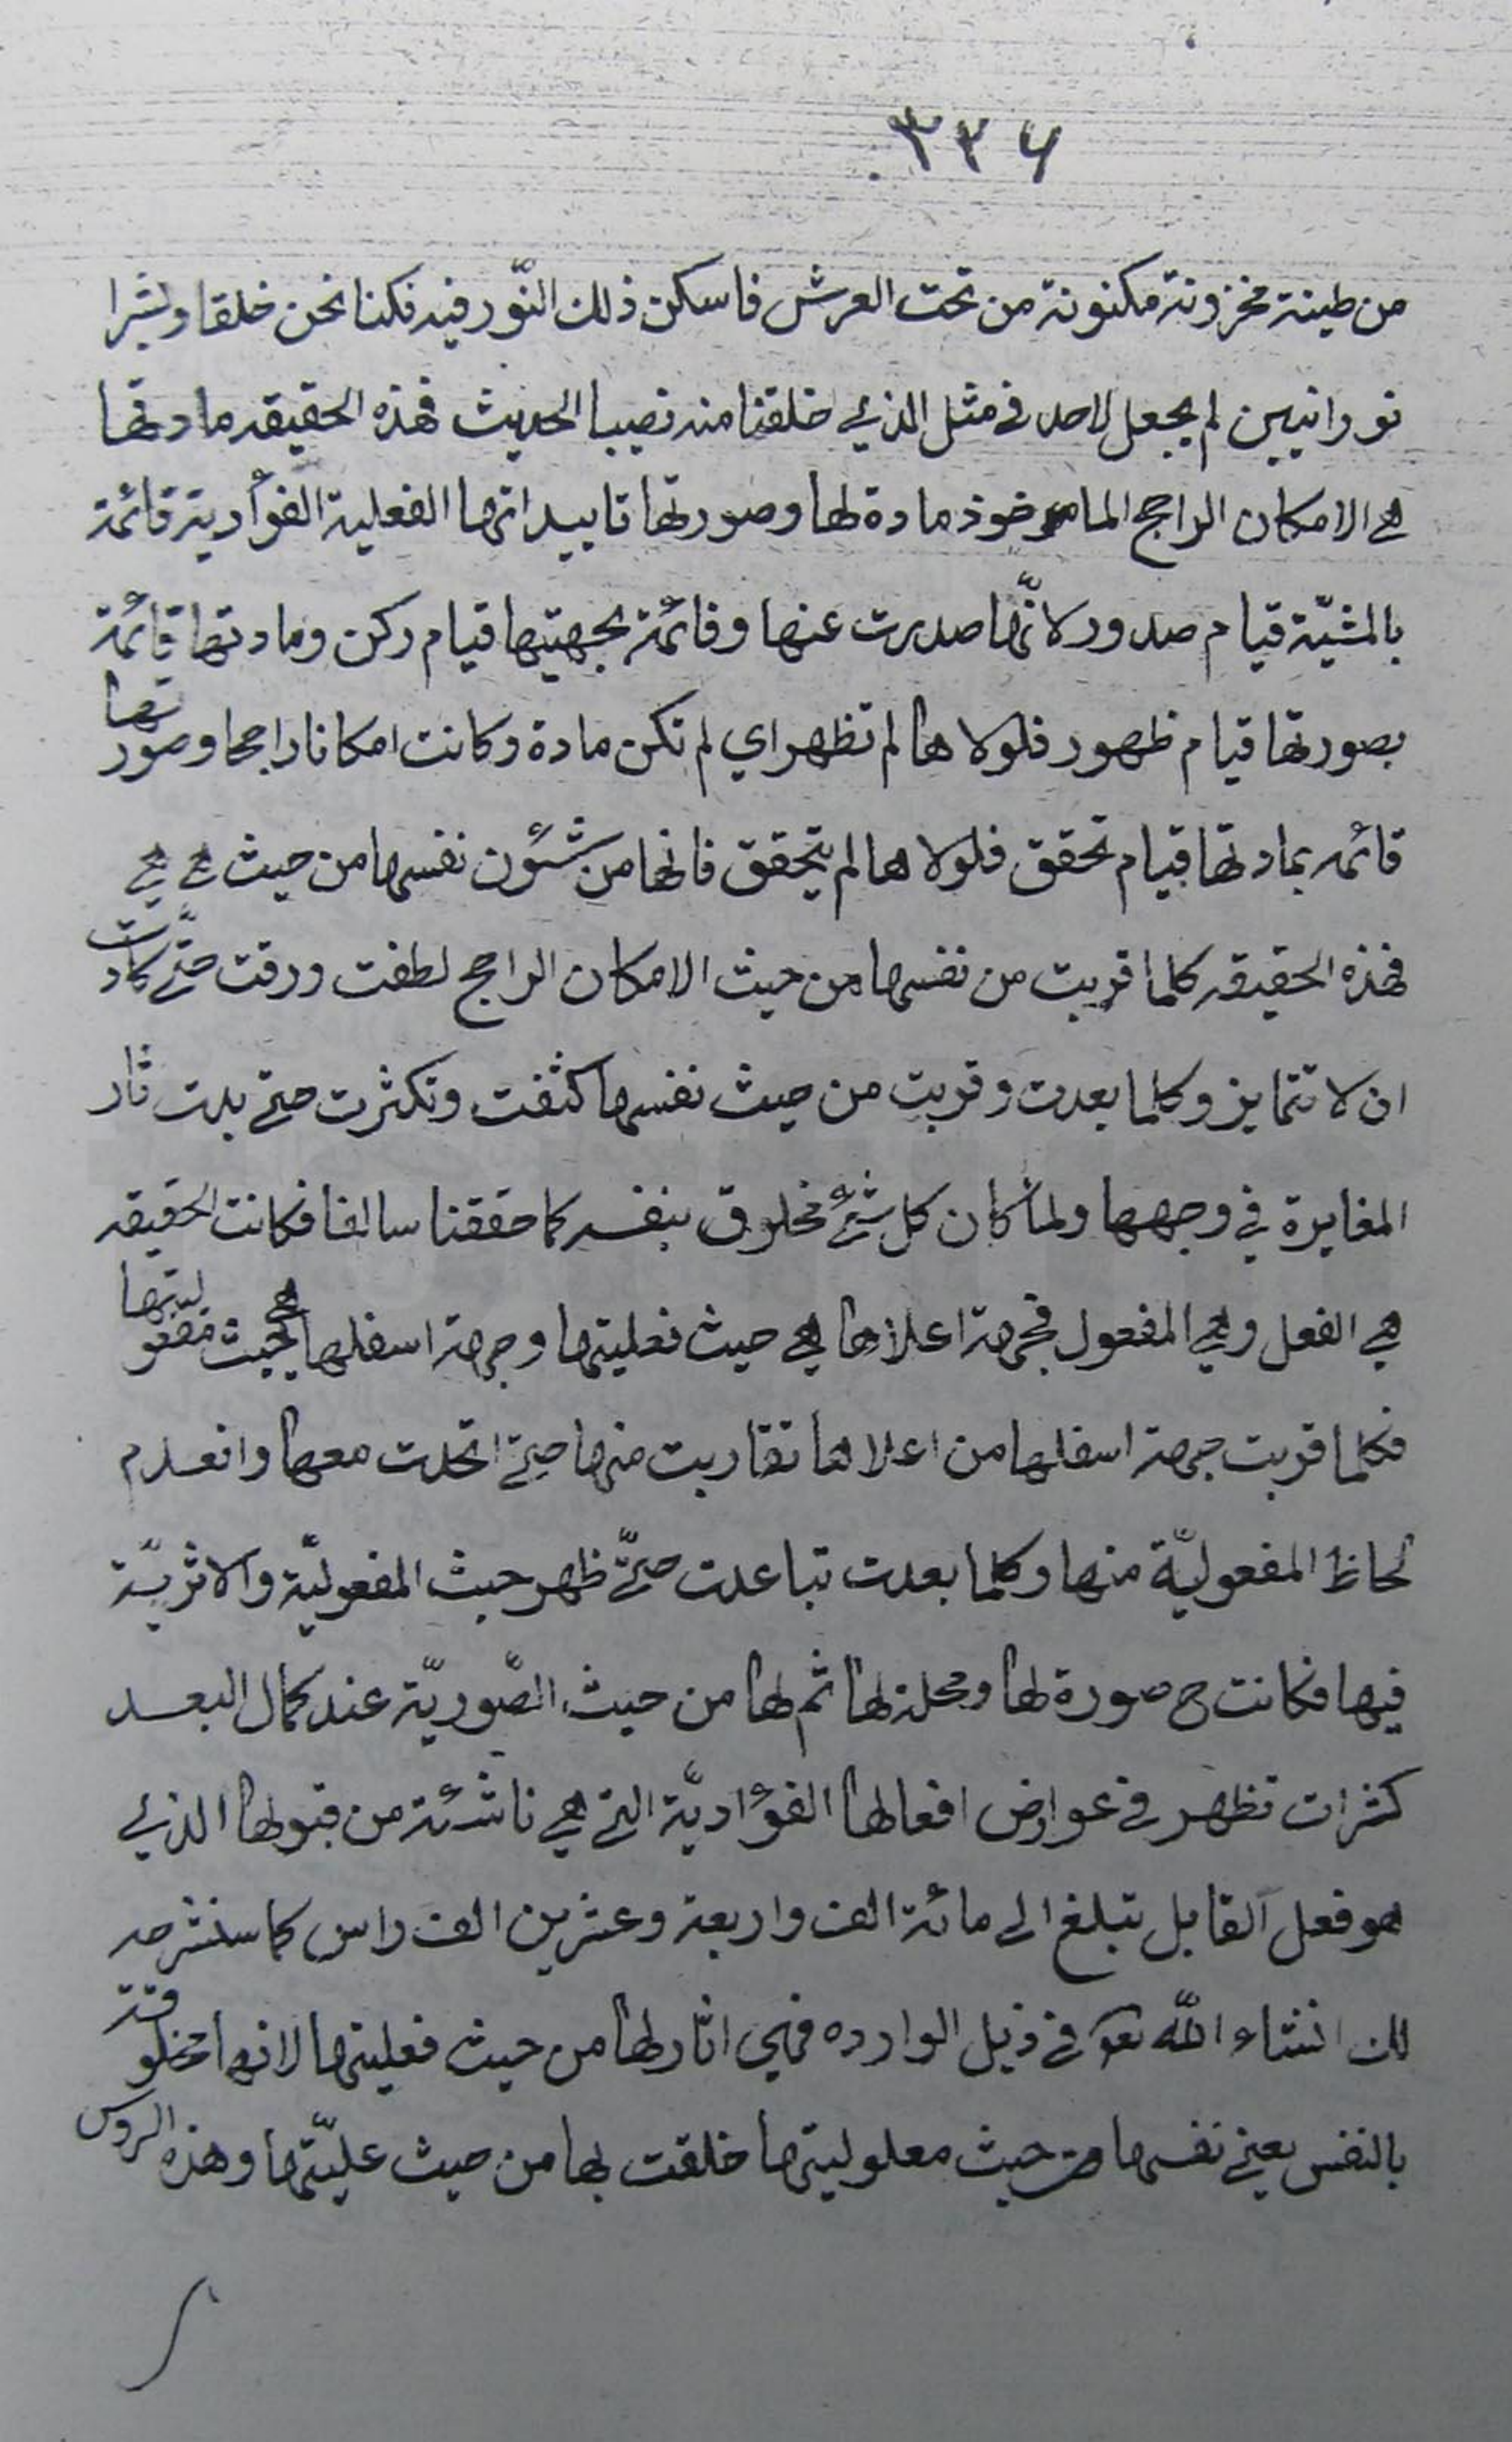 ٣٣۶
من طينة مخزونة مكنونة من تحت العرش فاسكن ذلك النّور فيه فكنا نحن خلقا وبشرا
نورانيين لم يجعل لاحد في مثل الذي خلقنا منه نصيبا الحديث فهذه الحقيقه مادتها
هي الامكان الراجح الماخوذ مادة لها وصورتها تاييداتها الفعلية الفؤادية قائمة
بالمشيّة قيام صدور لانّها صدرت عنها وقائمة بجهتيها قيام ركن ومادتها قائمة
بصورتها قيام ظهور فلولاها لم تظهر اي لم تكن مادة وكانت امكانا راجحا وصورتها
قائمه بمادتها قيام تحقق فلولاها لم يتحقق فانها من شئون نفسها من حيث هي هي
فهذه الحقيقه كلما قربت من نفسها من حيث الامكان الراجح لطفت ورقت حتّى كادت
ان لا تتمايز وكلما بعدت وقربت من حيث نفسها كثفت وتكثرت حتى بدت ثار
المغايرة في وجهها ولما كان كل شئ مخلوق بنفسه كما حققنا سالفا فكانت الحقيقه
هي الفعل وهي المفعول فجهة اعلاها هي حيث فعليتها وجهة اسفلها هي حيث مفعوليتها
فكلما قربت جهة اسفلها من اعلاها تقاربت منها حتى اتحدت معها وانعدم
لحاظ المفعوليّة منها وكلما بعدت تباعدت حتّى ظهر حيث المفعوليّة والاثريّة
فيها فكانت ح صورة لها ومحلة لها ثم لها من حيث الصّوريّة عند كمال البعد
كثرات تظهر في عوارض افعالها الفؤاديّة التي هي ناشئة من قبولها الذي
هو فعل القابل تبلغ الى مائة الف واربعة وعشرين الف راس كما سنشرحه
لك انشاء الله تعا في ذيل الوارده فهي اثار لها من حيث فعليتها لانها مخلوقة
بالنفس يعني نفسها من حيث معلوليتها خلقت بها من حيث عليّتها وهذه الروس